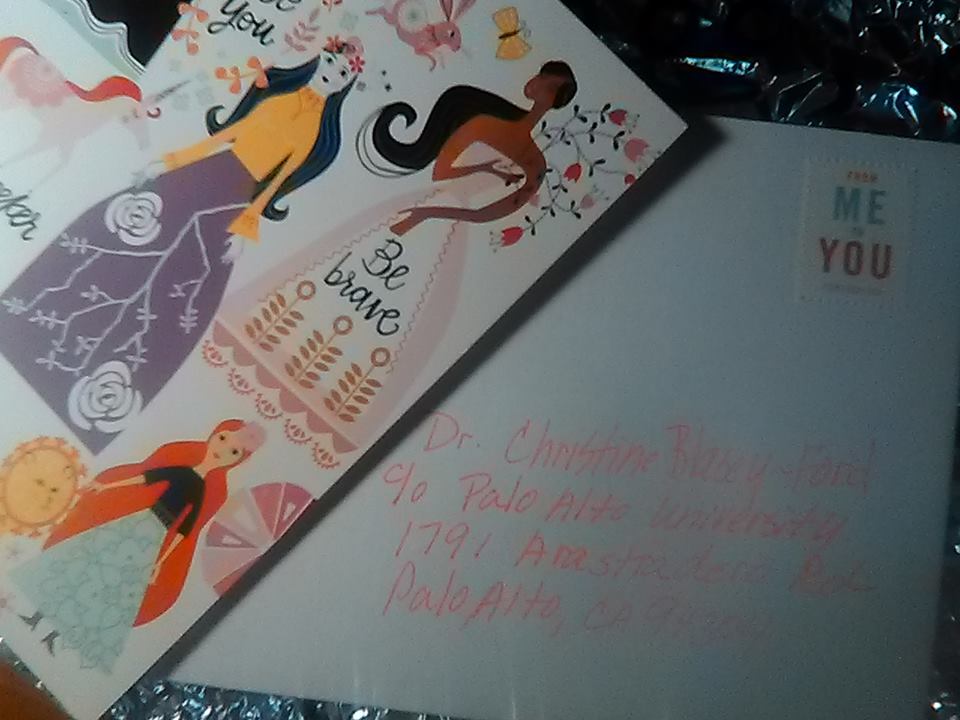 you
Be
brave
FROM
ME
TO
YOU
Dr. Christine Blasey-Ford
c/o Palo Alto University
1791 Arastradero Rd.
Palo Alto, CA